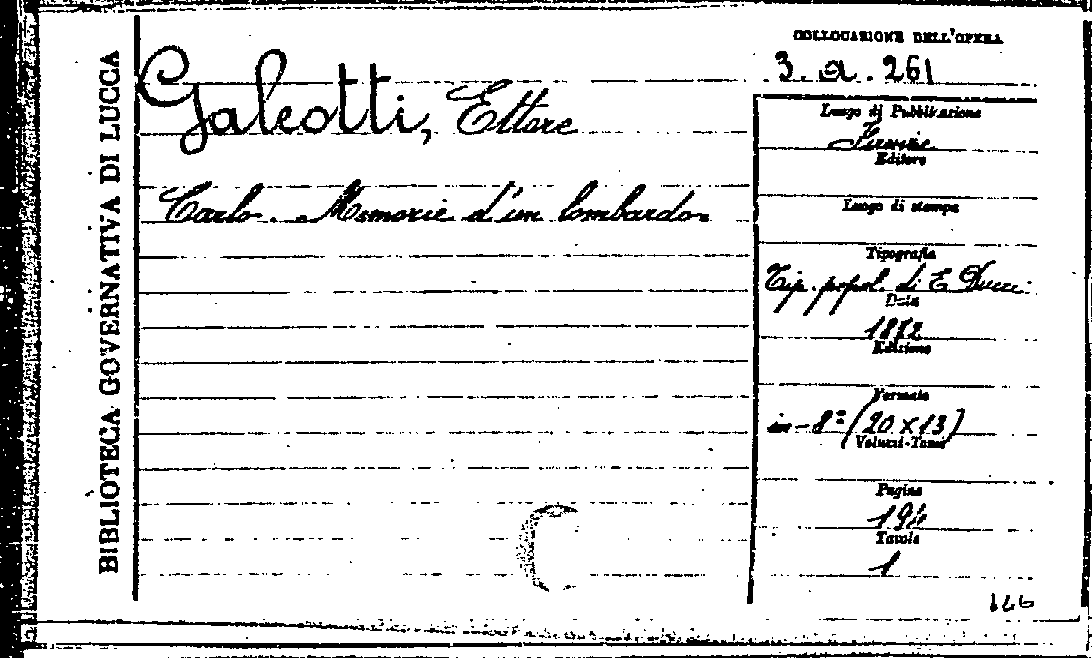 BIBLIOTECA GOVERNATIVA DI LUCCA
Galeotti, Ettore
Carlo. Memorie d'un lombardo.
COLLOCAZIONE DELL'OPERA
3. a. 261
Luogo di Pubblicazione
Firenze
Editore
Luogo di stampa
Tipografia
Tip. popol. di E. Ducci
Data
1872
Edizione
Formato
in-8º (20 x 13)
Volumi-Tomi
Pagine
194
Tavole
1